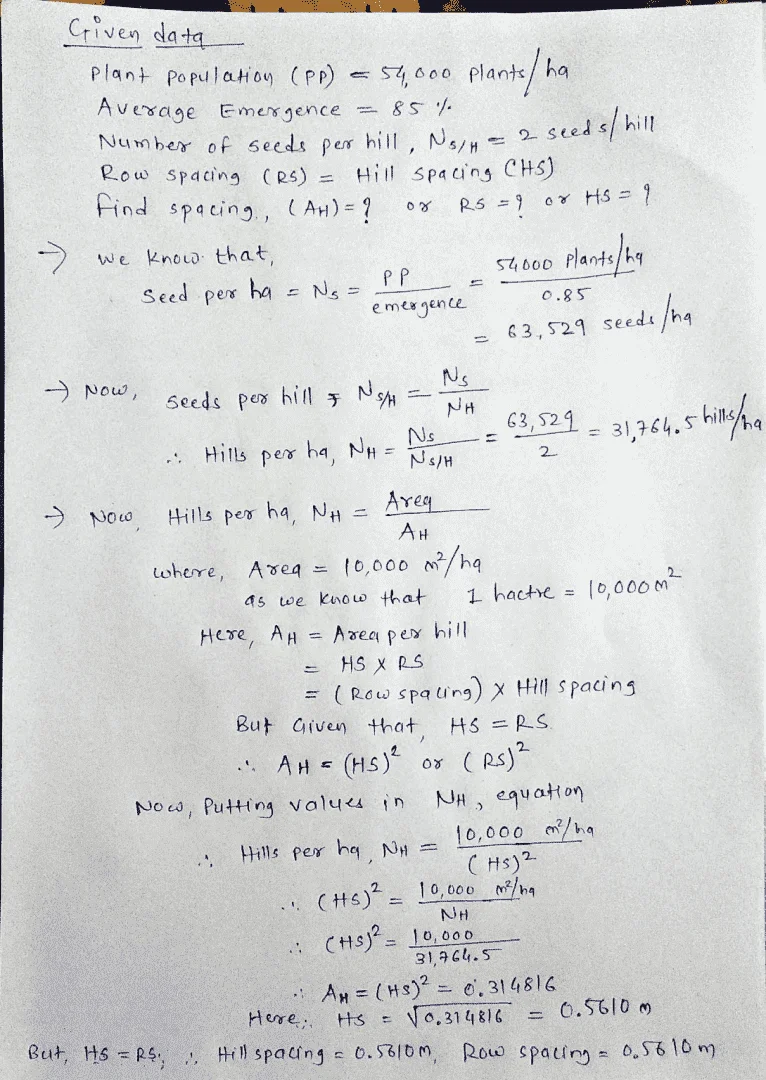 Given data
Plant population (PP) = 54,000 plants/ha
Average Emergence = 85 %
Number of seeds per hill, Ns/H = 2 seeds/hill
Row spacing (RS) = Hill spacing (HS)
find spacing, (AH) = ? or RS = ? or HS = ?
→ we know that,
Seed per ha = Ns = PP / emergence = 54000 plants/ha / 0.85
= 63,529 seeds/ha
→ Now, seeds per hill = Ns/H = Ns / NH
∴ Hills per ha, NH = Ns / Ns/H = 63,529 / 2 = 31,764.5 hills/ha
→ Now, Hills per ha, NH = Area / AH
where, Area = 10,000 m²/ha
as we know that 1 hactre = 10,000 m²
Here, AH = Area per hill
= HS X RS
= (Row spacing) X Hill spacing
But Given that, HS = RS
∴ AH = (HS)² or (RS)²
Now, Putting values in NH, equation
∴ Hills per ha, NH = 10,000 m²/ha / (HS)²
∴ (HS)² = 10,000 m²/ha / NH
∴ (HS)² = 10,000 / 31,764.5
∴ AH = (HS)² = 0.314816
Here, HS = √0.314816 = 0.5610 m
But, HS = RS, ∴ Hill spacing = 0.5610m, Row spacing = 0.5610m